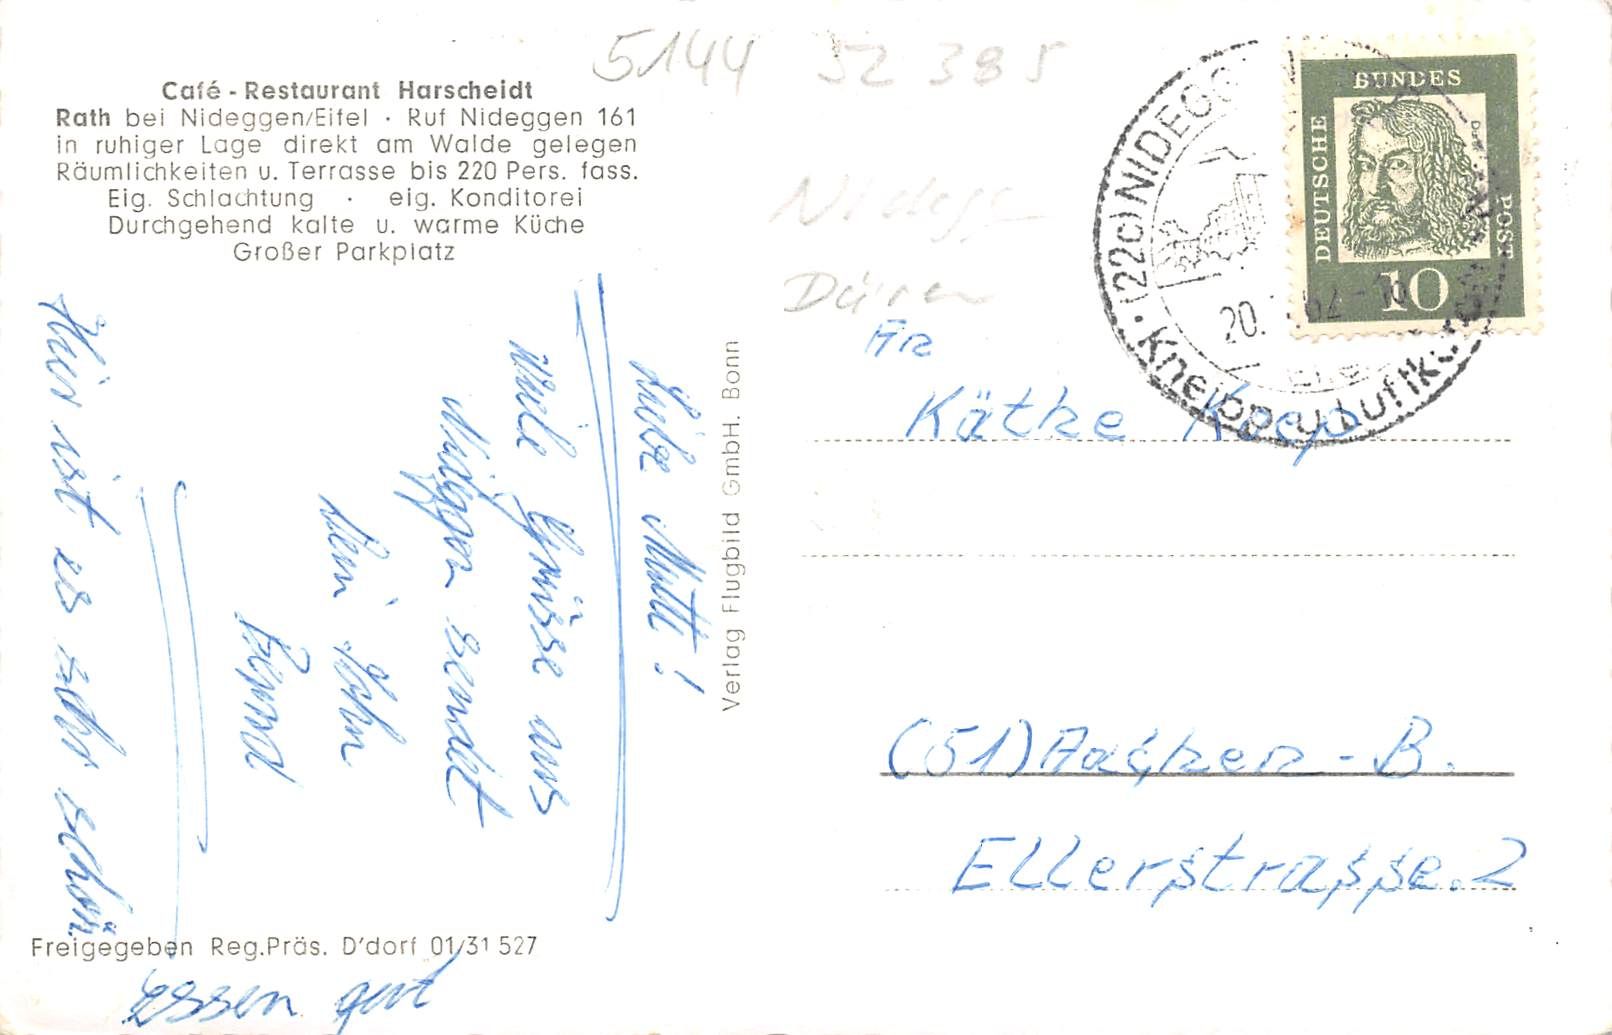 Café - Restaurant Harscheidt
Rath bei Nideggen/Eifel · Ruf Nideggen 161
in ruhiger Lage direkt am Walde gelegen
Räumlichkeiten u. Terrasse bis 220 Pers. fass.
Eig. Schlachtung · eig. Konditorei
Durchgehend kalte u. warme Küche
Großer Parkplatz
5144 52 385
Nidegg
Düren
Liebe Mutti!
Viele Grüsse aus
Nideggen sendet
Dein Sohn
Hier ist es sehr schön
essen gut
Freigegeben Reg.Präs. D'dorf 01/31 527
Verlag Flugbild GmbH. Bonn
(22c) NIDEGG
20.
Kneipp u Luftk
DEUTSCHE
BUNDES
POST
10
An
Käthe Koep
(51) Aachen - B.
Ellerstrasse. 2